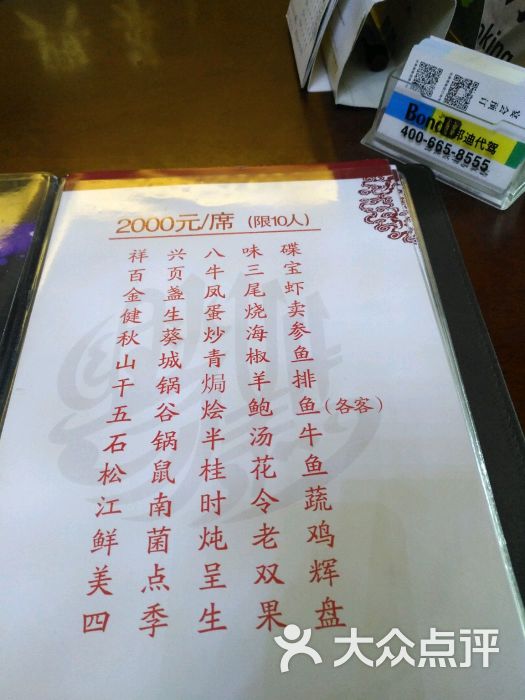 2000元/席 (限10人)
祥兴八味碟
百页牛三宝
金盏凤尾虾
健生蛋烧卖
秋葵炒海参
山城青椒鱼
干锅焗羊排
五谷烩鲍鱼(各客)
石锅半汤牛
松鼠桂花鱼
江南时令蔬
鲜菌炖老鸡
美点呈双辉
四季生果盘
Bond 邦迪代驾
400-665-8555
大众点评